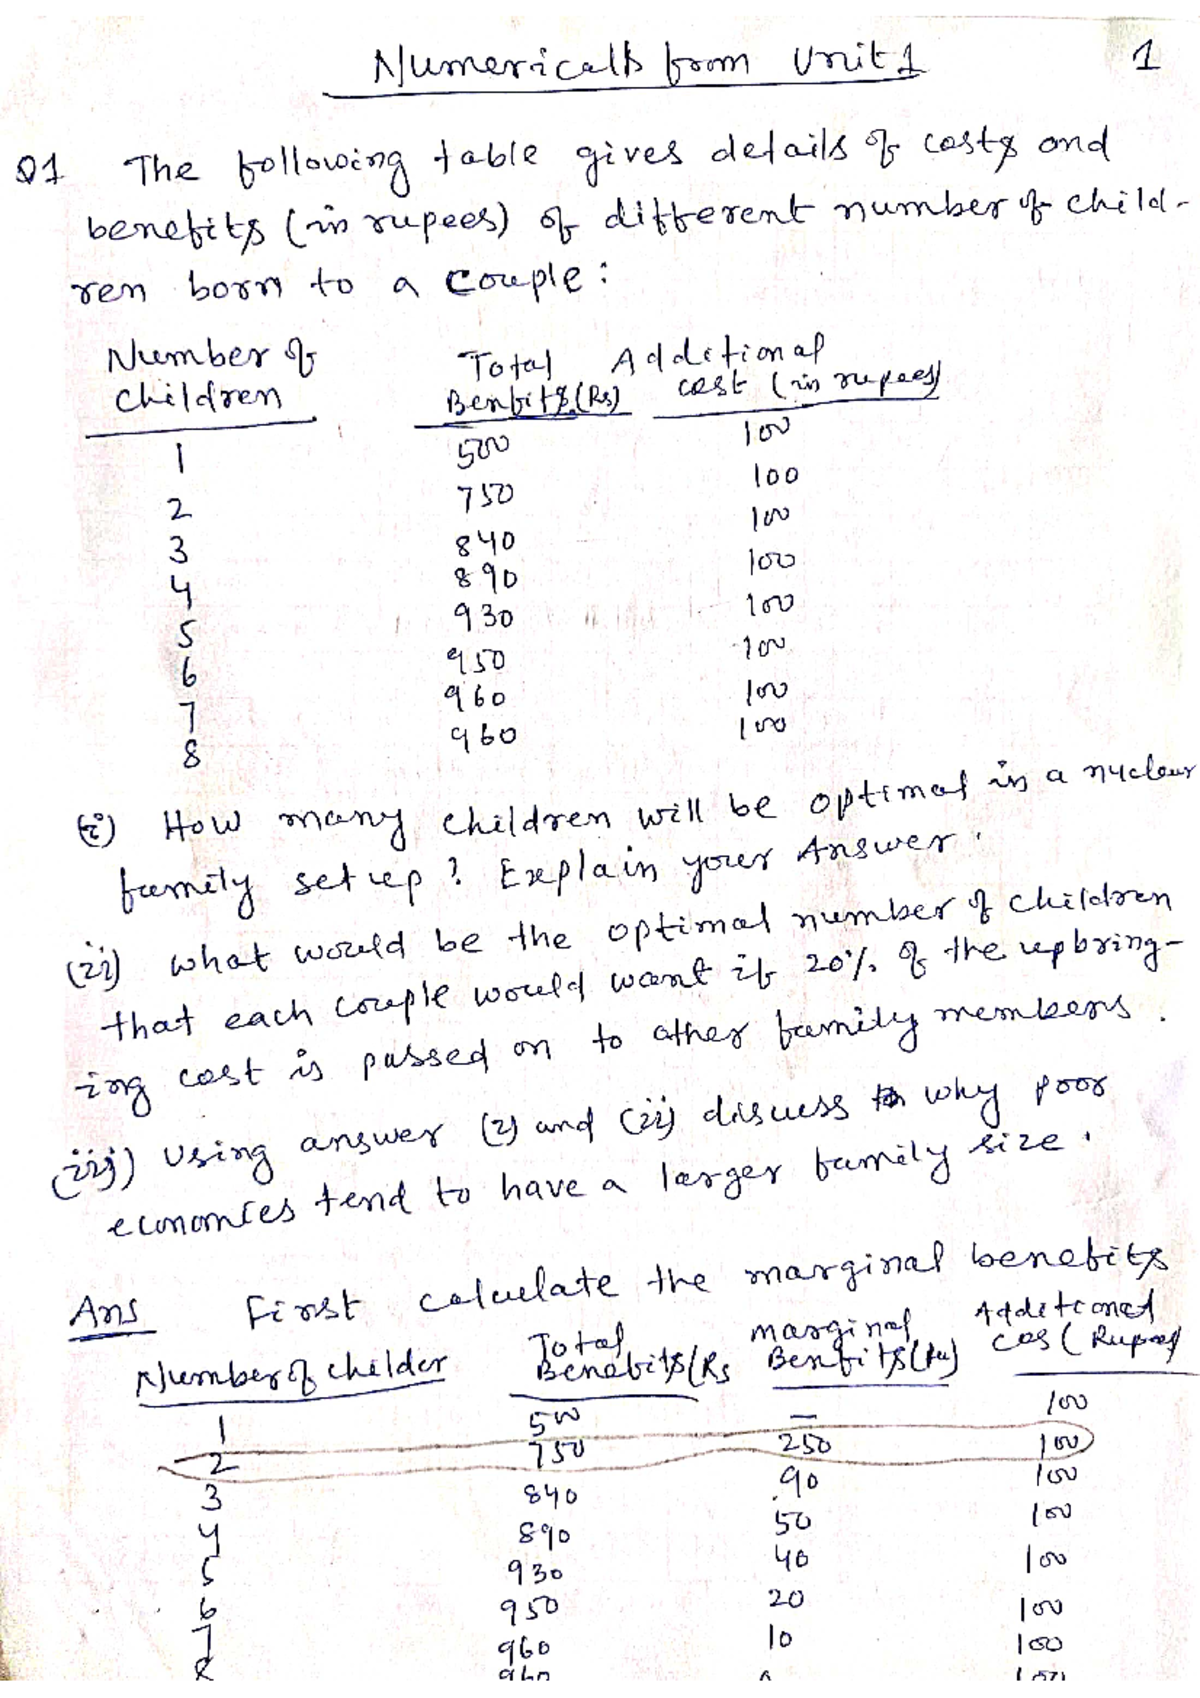 Numericals from Unit 1 1
Q1 The following table gives details of costs and
benefits (in rupees) of different number of child-
ren born to a couple:
Number of Total Additional
children Benfits (Rs) cost (in rupees)
1 500 100
2 750 100
3 840 100
4 890 100
5 930 100
6 950 100
7 960 100
8 960 100
(i) How many children will be optimal in a nuclear
family set up? Explain your Answer.
(ii) what would be the optimal number of children
that each couple would want if 20% of the upbring-
ing cost is passed on to other family members.
(iii) Using answer (i) and (ii) discuss why poor
economies tend to have a larger family size.
Ans First calculate the marginal benefits
Number of childer Total Benebits (Rs marginal Benfits (Rs) Additional Cos (Rupees)
1 500 — 100
2 750 250 100
3 840 90 100
4 890 50 100
5 930 40 100
6 950 20 100
7 960 10 100
8 960 0 100